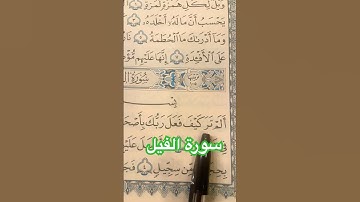 وَيْلٌ لِّكُلِّ هُمَزَةٍ لُّمَزَةٍ
يَحْسَبُ أَنَّ مَالَهُۥٓ أَخْلَدَهُۥ
وَمَآ أَدْرَىٰكَ مَا ٱلْحُطَمَةُ
عَلَى ٱلْأَفْـِٔدَةِ إِنَّهَا عَلَيْهِم
سُورَةُ
أَلَمْ تَرَ كَيْفَ فَعَلَ رَبُّكَ
سورة الفيل
مِّن سِجِّيلٍ